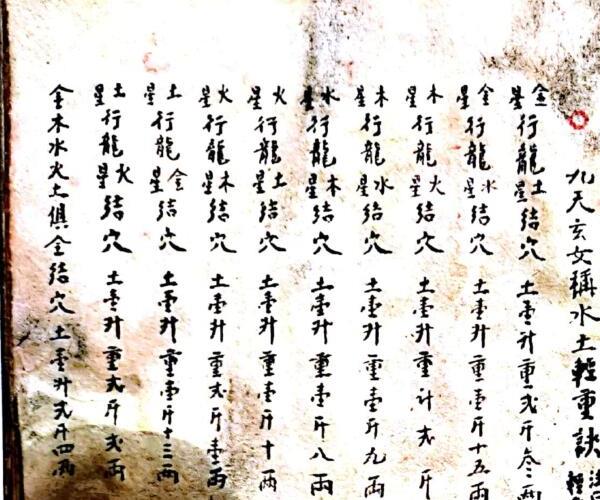 九天玄女稱水土輕重訣
金星行龍土星結穴 土壹升重弍斤叁兩
金星行龍水星結穴 土壹升重壹斤十五兩
木星行龍火星結穴 土壹升重计弍斤
木星行龍水星結穴 土壹升重壹斤九兩
水星行龍木星結穴 土壹升重壹斤八兩
火星行龍土星結穴 土壹升重壹斤十兩
火星行龍木星結穴 土壹升重弍斤壹兩
土星行龍金星結穴 土壹升重壹斤十三兩
土星行龍火星結穴 土壹升重弍斤弍兩
金木水火土俱全結穴 土壹升弍斤四兩